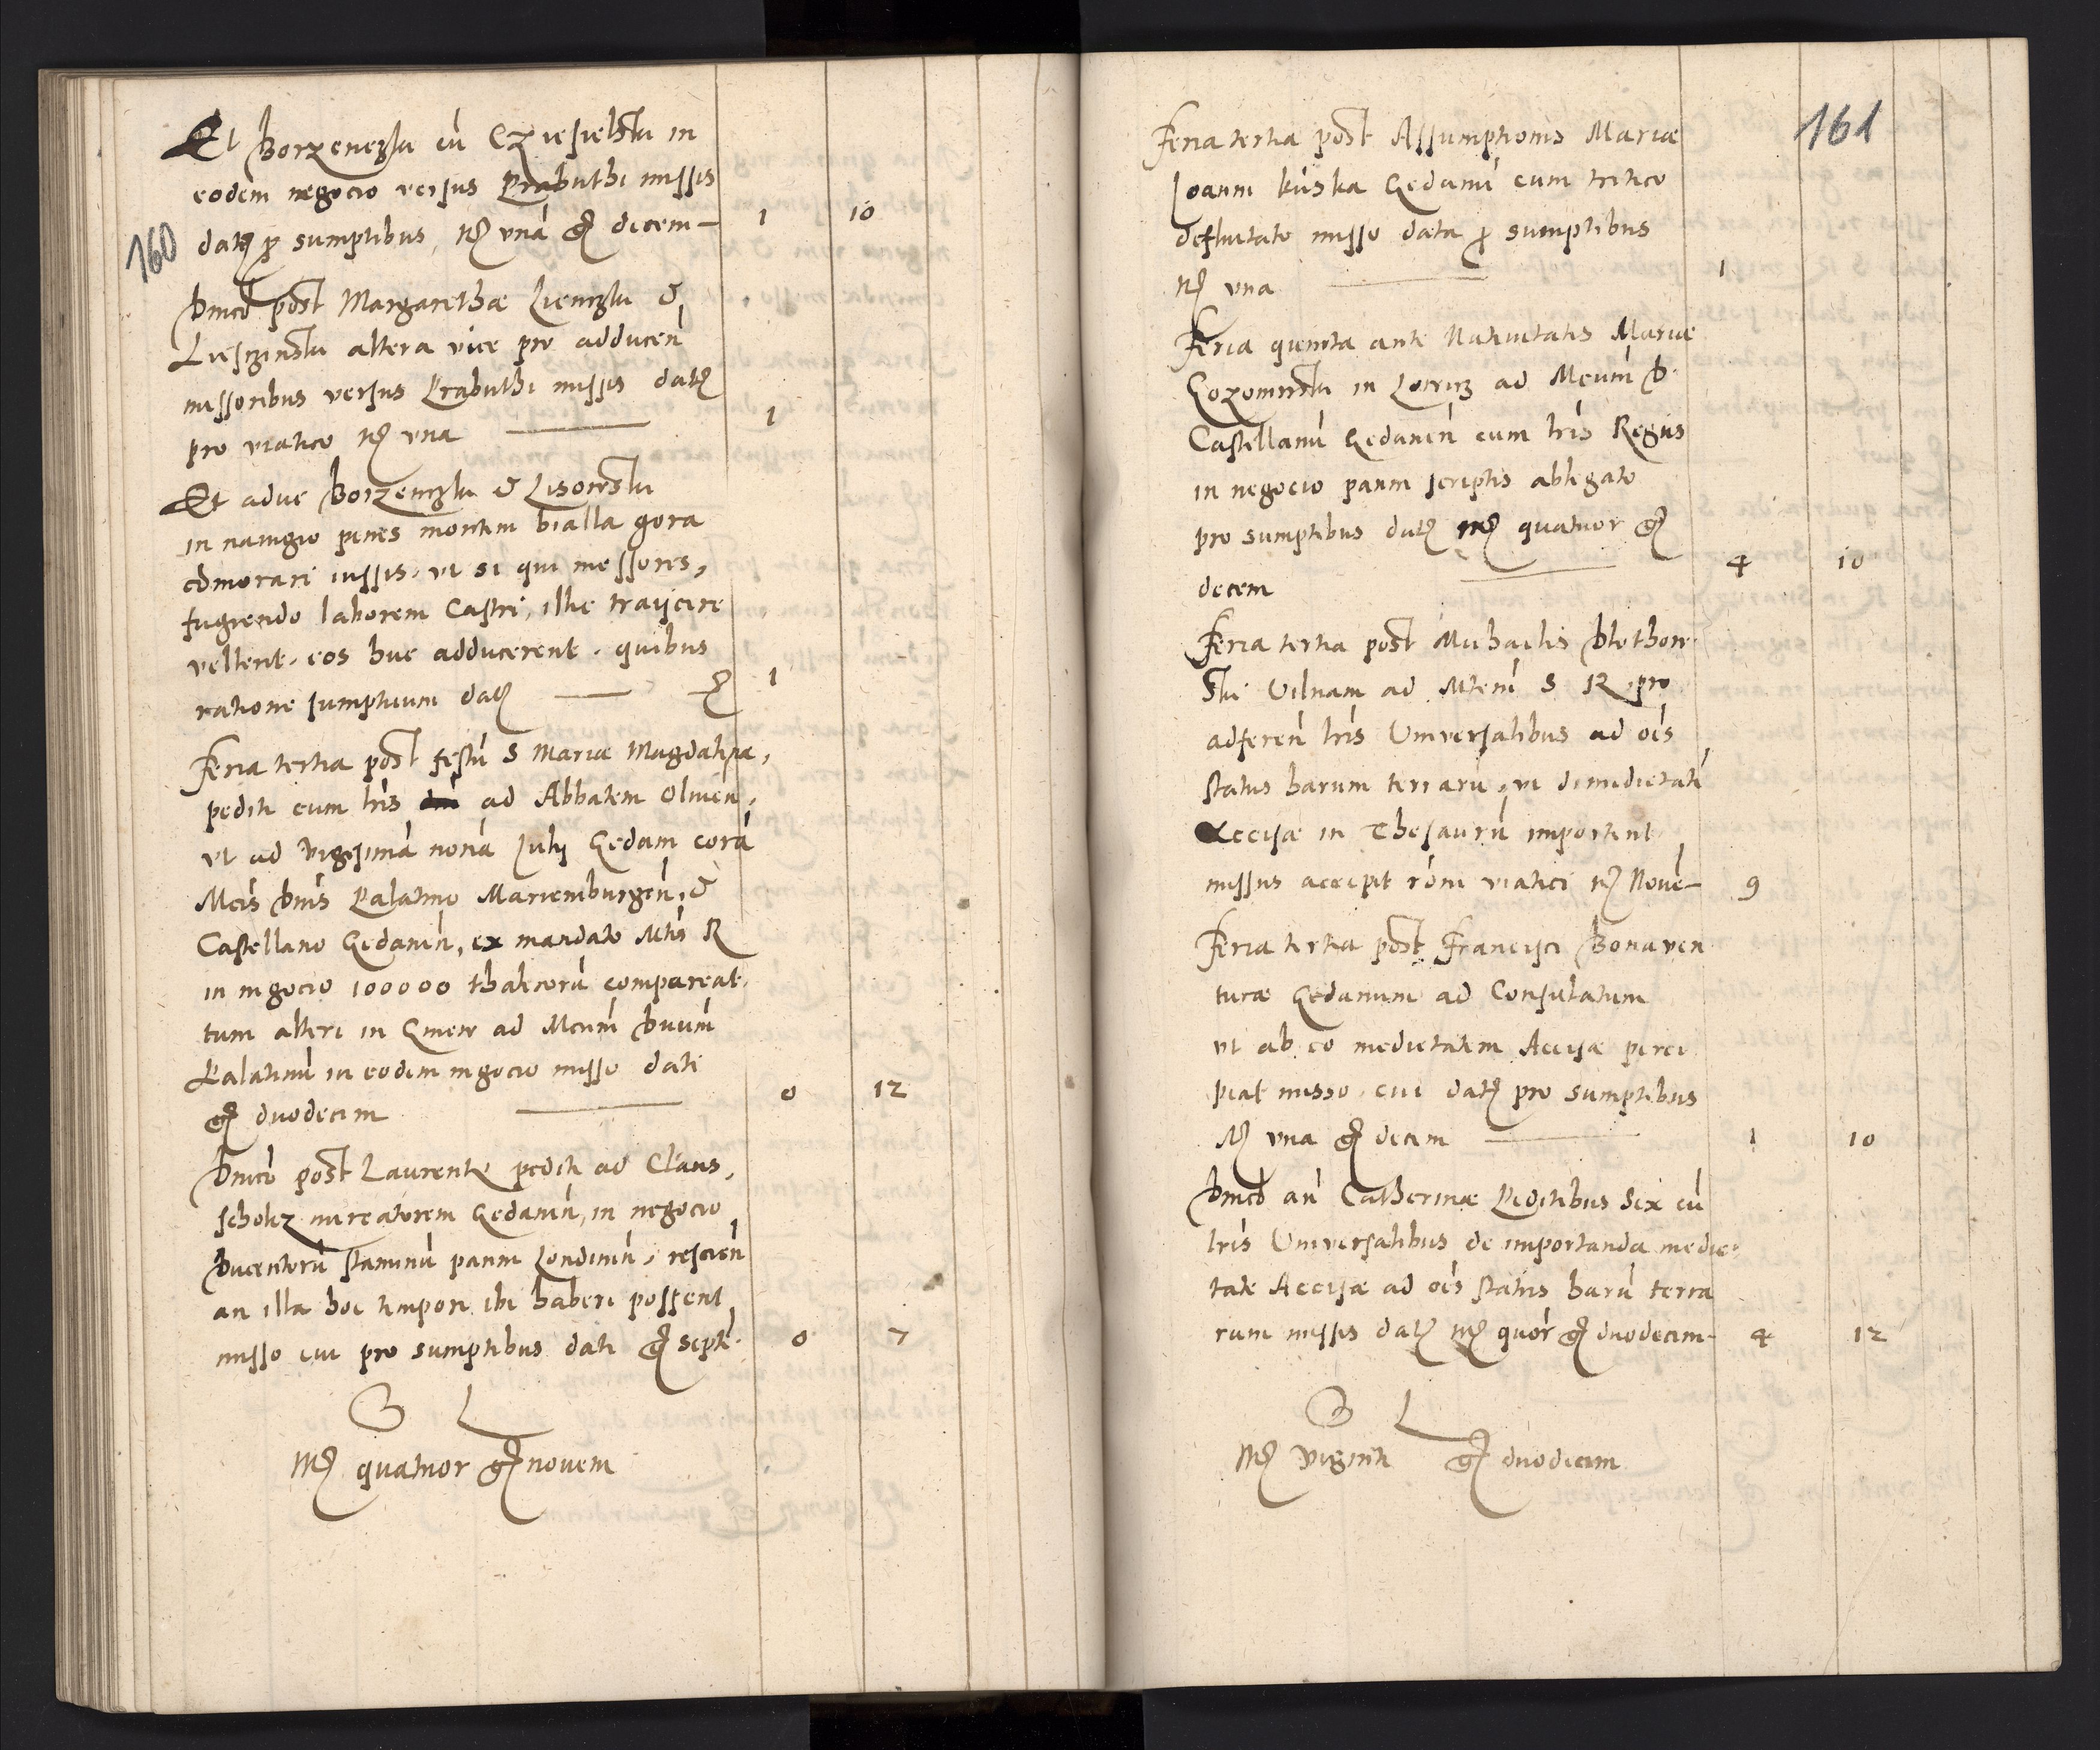 160
Et Borzenczky cū Cziesielsky in
eodem negocio versus Prabuthi missis
dat ꝑ sumptibus, mc̃ vnā gr̃ decem — 1 10
Dnico post Margarethæ Liemczky &
Liesczinsky altera vice pro adducen̄
missoribus versus Prabuthi missis dat
pro viatico mc̃ vna — 1
Et aduc Borzemczky & Lisowsky
in nauigio penes montem bialla gora
cōmorari iussis, vt si qui messores,
fugiendo laborem Castri, illic traijcere
vellent, eos huc adducerent, quibus
ratione sumptuum dat — 1
Feria tertia post festū S Mariæ Magdalenæ,
pediti cum lr̄is ad Abbatem Oliuen̄,
vt ad vigesimā nonā Julij Gedani corā
Mcīs Dnīs Palatino Mariemburgen̄, &
Castellano Gedanēn, ex mandato Mtīs R
in negocio 100000 thalerorū compareat,
tum alteri in Gmew ad Mcum̄ Dnum̄
Palatinū in eodem negocio misso dati
gr̃ duodecim — 0 12
Dnico post Laurentij pediti ad Claus,
scholcz mercatorem Gedanēn, in negocio
Ducentorū staminū panni Londinēn, rescien̄
an illa hoc tempore ibi haberi possent
misso cui pro sumptibus dati gr̃ septē. 0 7
S L
Mc̃ quatuor gr̃ nouem
161
Feria tertia post Assumptionis Mariæ
Joanni Kuska Gedanū cum tritico
defluitato misso data ꝑ sumptibus
mc̃ vna — 1
Feria quinta ante Natiuitatis Mariæ
Gozominsky in Lowicz ad Mcum̄ D.
Castellanū Gedanēn cum lr̄is Regiis
in negocio panni scriptis ablegato
pro sumptibus dat mc̃ quatuor gr̃
decem — 4 10
Feria tertia post Michaelis Blothow
ski Vilnam ad Mtem̄ S R pro
adferen̄ lr̄is Vniversalibus ad oēs
status harum terrarū, vt dimidietatē
Accisæ in Thesaurū importent
missus accepit rōne viatici mc̃ Nouē — 9
Feria tertia post Francisci Bonaven
turæ Gedanum ad Consulatum
vt ab eo medietatem Accisæ perci
piat misso, cui dat pro sumptibus
Mc̃ vna gr̃ decem — 1 10
Dnico an̄ Catherinæ Peditibus Sex cū
lr̄is Vniversalibus de importanda medie
tate Accisæ ad oēs status harū terra
rum missis dat mc̃ quōr gr̃ duodecim — 4 12
S L
Mc̃ Viginti gr̃ duodecim